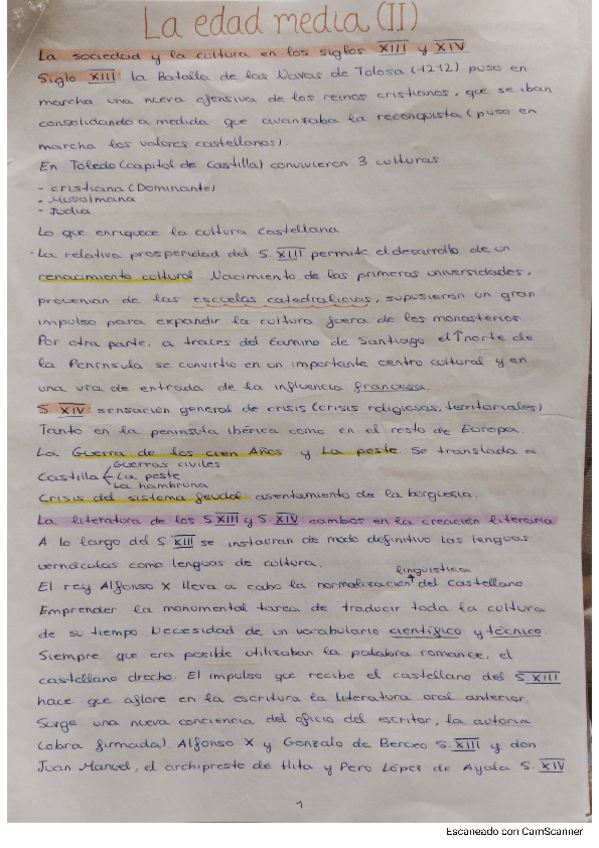 La edad media (II)
La sociedad y la cultura en los siglos XIII y XIV
Siglo XIII: la Batalla de las Navas de Tolosa (1212) puso en
marcha una nueva ofensiva de los reinos cristianos, que se iban
consolidando a medida que avanzaba la reconquista (puso en
marcha los valores castellanos).
En Toledo (capital de Castilla) convivieron 3 culturas
- cristiana (Dominante)
- Musulmana
- Judía
Lo que enriquece la cultura castellana.
· La relativa prosperidad del S. XIII permite el desarrollo de un
renacimiento cultural. Nacimiento de las primeras universidades,
provenían de las escuelas catedralicias, supusieron un gran
impulso para expandir la cultura fuera de los monasterios
Por otra parte, a traves del Camino de Santiago el ↑norte de
la Península se convirtio en un importante centro cultural y en
una vía de entrada de la influencia francesa.
S. XIV: sensación general de crisis (crisis religiosas, territoriales)
Tanto en la península ibérica como en el resto de Europa.
La Guerra de los cien Años y La peste. Se translada a
Castilla
Guerras civiles
La peste
La hambruna
Crisis del sistema feudal asentamiento de la burguesía.
La literatura de los S XIII y S. XIV cambios en la creación literaria
A lo largo del S XIII se instauran de modo definitivo las lenguas
vernáculas como lenguas de cultura.
lingüística
El rey Alfonso X lleva a cabo la normalización del castellano.
Emprender la monumental tarea de traducir toda la cultura
de su tiempo. Necesidad de un vocabulario científico y técnico.
Siempre que era posible utilizaban la palabra romance, el
castellano drecho. El impulso que recibe el castellano del S XIII
hace que aflore en la escritura la literatura oral anterior.
Surge una nueva conciencia del oficio del escritor, la autoria
(obra firmada). Alfonso X y Gonzalo de Berceo S. XIII y don
Juan Manuel, el archipreste de Hita y Pero López de Ayala S. XIV
1
Escaneado con CamScanner